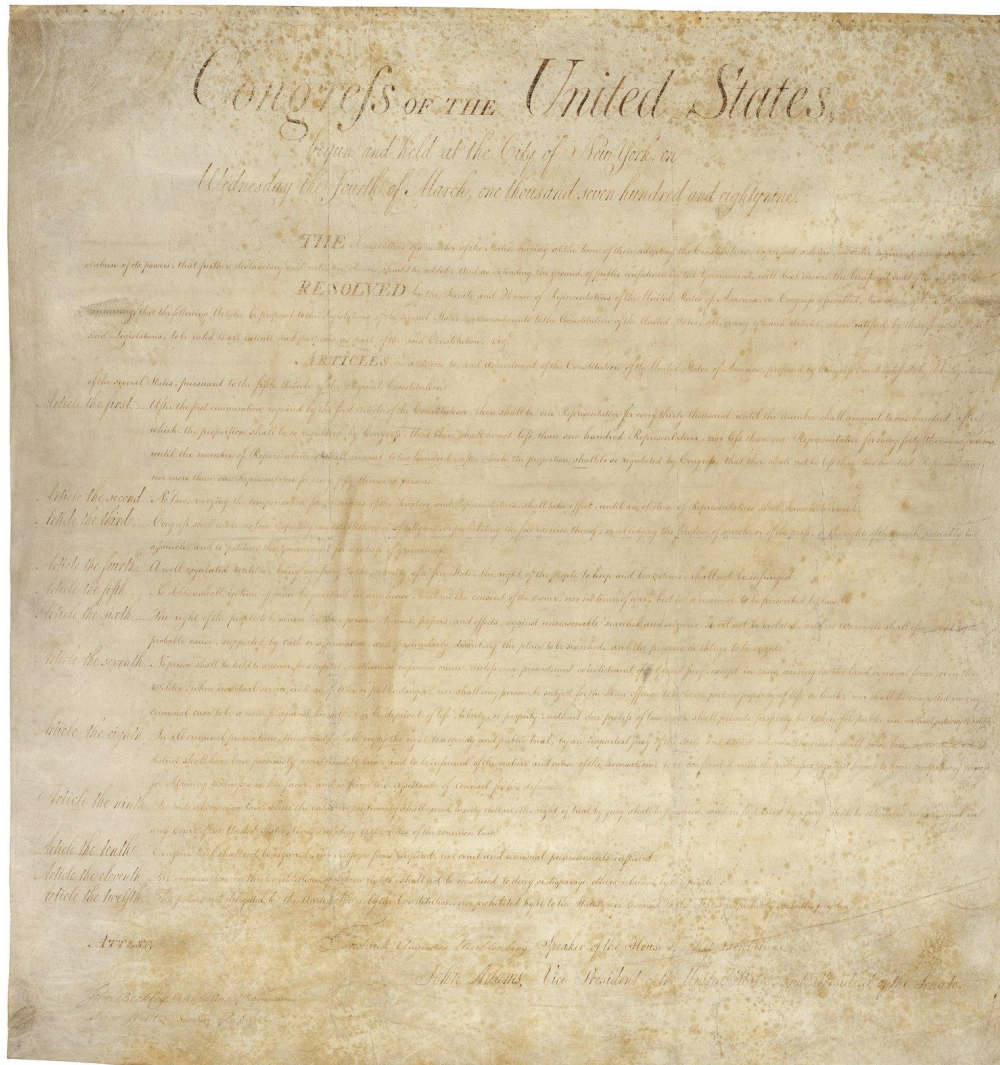 Congreſs OF THE United States,
begun and held at the City of New York, on
Wednesday the fourth of March, one thousand seven hundred and eighty nine.
THE Conventions of a number of the States, having at the time of their adopting the Constitution, expreſsed a desire, in order to prevent misconstruction
or abuse of its powers, that further declaratory and restrictive clauses should be added: And as extending the ground of public confidence in the Government, will best ensure the beneficent ends of its institution
RESOLVED by the Senate and House of Representatives of the United States of America, in Congreſs aſsembled, two thirds of both Houses
concurring, that the following Articles be proposed to the Legislatures of the several States, as amendments to the Constitution of the United States, all, or any of which Articles, when ratified by three fourths of the
said Legislatures, to be valid to all intents and purposes, as part of the said Constitution; vizt.
ARTICLES in addition to, and Amendment of the Constitution of the United States of America, proposed by Congreſs, and ratified by the Legislatures
of the several States, pursuant to the fifth Article of the original Constitution.
Article the first. After the first enumeration required by the first Article of the Constitution, there shall be one Representative for every thirty thousand, until the number shall amount to one hundred, after
which, the proportion shall be so regulated by Congreſs, that there shall be not leſs than one hundred Representatives, nor leſs than one Representative for every forty thousand persons,
until the number of Representatives shall amount to two hundred, after which the proportion shall be so regulated by Congreſs, that there shall not be leſs than two hundred Representatives,
nor more than one Representative for every fifty thousand persons.
Article the second. No law, varying the compensation for the services of the Senators and Representatives, shall take effect, until an election of Representatives shall have intervened.
Article the third. Congreſs shall make no law respecting an establishment of religion, or prohibiting the free exercise thereof; or abridging the freedom of speech, or of the preſs; or the right of the people peaceably to
aſsemble, and to petition the Government for a redreſs of grievances.
Article the fourth. A well regulated Militia, being neceſsary to the security of a free State, the right of the people to keep and bear Arms, shall not be infringed.
Article the fifth. No Soldier shall, in time of peace be quartered in any house, without the consent of the owner, nor in time of war, but in a manner to be prescribed by law.
Article the sixth. The right of the people to be secure in their persons, houses, papers, and effects, against unreasonable searches and seizures, shall not be violated, and no Warrants shall iſsue, but upon
probable cause, supported by oath or affirmation, and particularly describing the place to be searched, and the persons or things to be seized.
Article the seventh. No person shall be held to answer for a capital, or otherwise infamous crime, unleſs on a presentment or indictment of a Grand Jury, except in cases arising in the land or naval forces, or in the
Militia, when in actual service in time of War or public danger; nor shall any person be subject for the same offence to be twice put in jeopardy of life or limb; nor shall be compelled in any
criminal case to be a witneſs against himself, nor be deprived of life, liberty, or property, without due proceſs of law; nor shall private property be taken for public use, without just compensation.
Article the eighth. In all criminal prosecutions, the accused shall enjoy the right to a speedy and public trial, by an impartial jury of the State and district wherein the crime shall have been committed, which
district shall have been previously ascertained by law, and to be informed of the nature and cause of the accusation; to be confronted with the witneſses against him; to have compulsory proceſs
for obtaining witneſses in his favor, and to have the aſsistance of counsel for his defence.
Article the ninth. In suits at common law, where the value in controversy shall exceed twenty dollars, the right of trial by jury shall be preserved, and no fact tried by a jury, shall be otherwise re-examined in
any Court of the United States, than according to the rules of the common law.
Article the tenth. Exceſsive bail shall not be required, nor exceſsive fines imposed, nor cruel and unusual punishments inflicted.
Article the eleventh. The enumeration in the Constitution, of certain rights, shall not be construed to deny or disparage others retained by the people.
Article the twelfth. The powers not delegated to the United States by the Constitution, nor prohibited by it to the States, are reserved to the States respectively, or to the people.
ATTEST,
Frederick Augustus Muhlenberg Speaker of the House of Representatives.
John Adams, Vice President of the United States, and President of the Senate.
John Beckley, Clerk of the House of Representatives.
Secretary of the Senate.